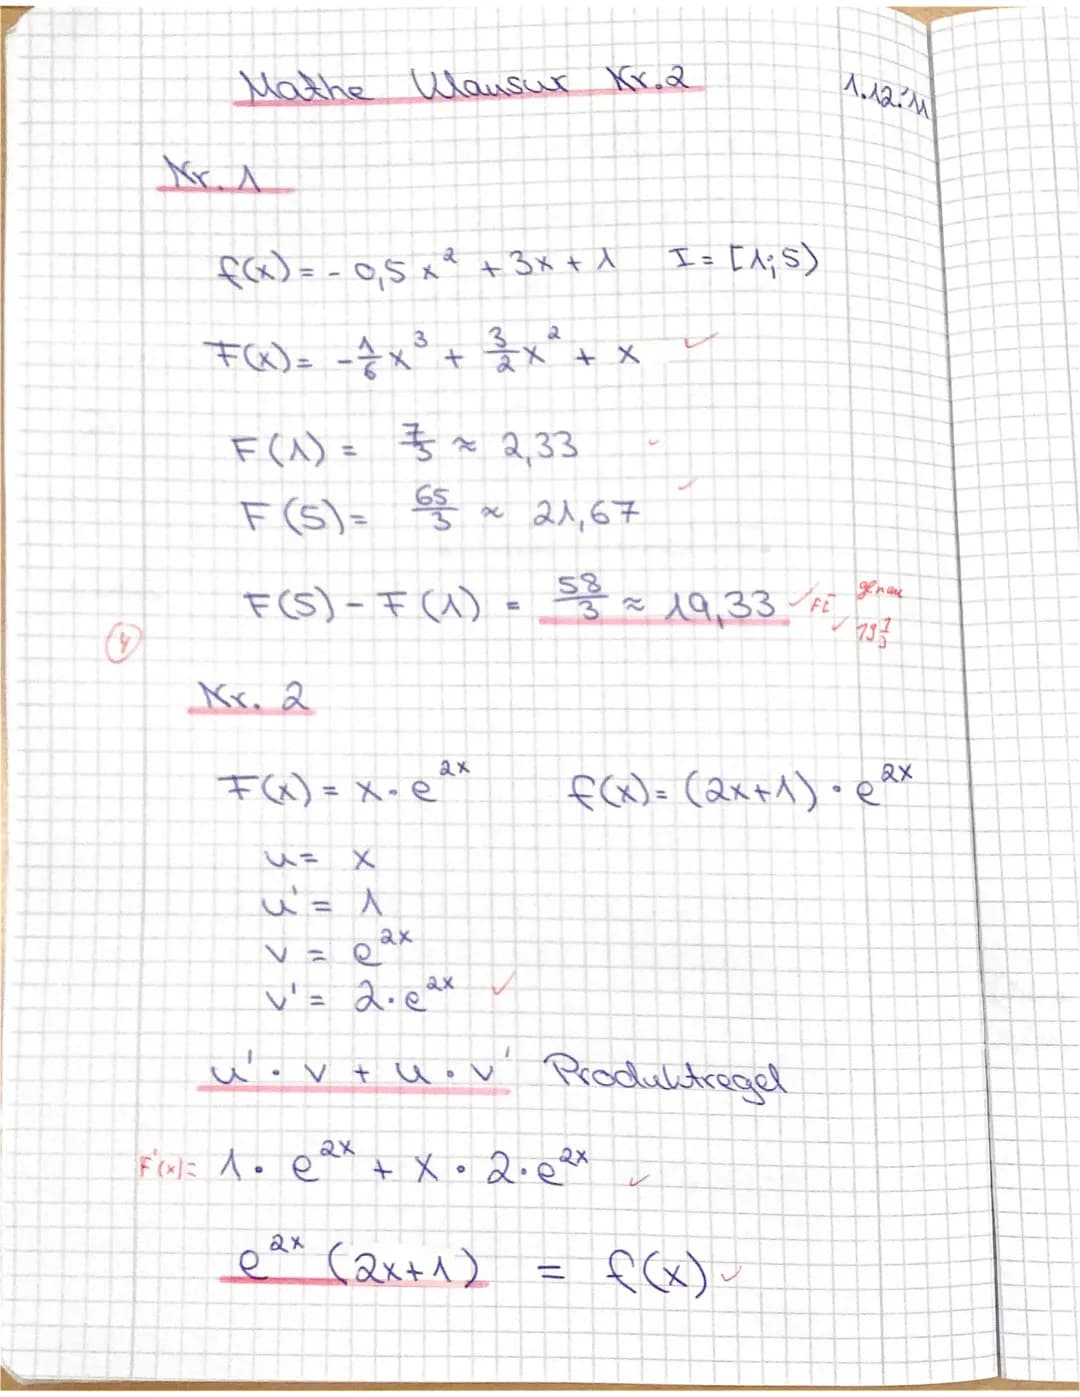 Mathe Klausur Nr. 2 1.12.'11
Nr. 1
f(x) = - 0,5 x² + 3x + 1 I = [1; 5)
F(x) = - 1/6 x³ + 3/2 x² + x ✓
F(1) = 7/3 ≈ 2,33
F(5) = 65/3 ≈ 21,67
F(5) - F(1) = 58/3 ≈ 19,33 ✓ FE genau
✓ 19 1/3
4
Nr. 2
F(x) = x · e^2x f(x) = (2x+1) · e^2x
u = x
u' = 1
v = e^2x
v' = 2 · e^2x ✓
u' · v + u · v' Produktregel
F'(x) = 1 · e^2x + x · 2 · e^2x ✓
e^2x (2x+1) = f(x) ✓